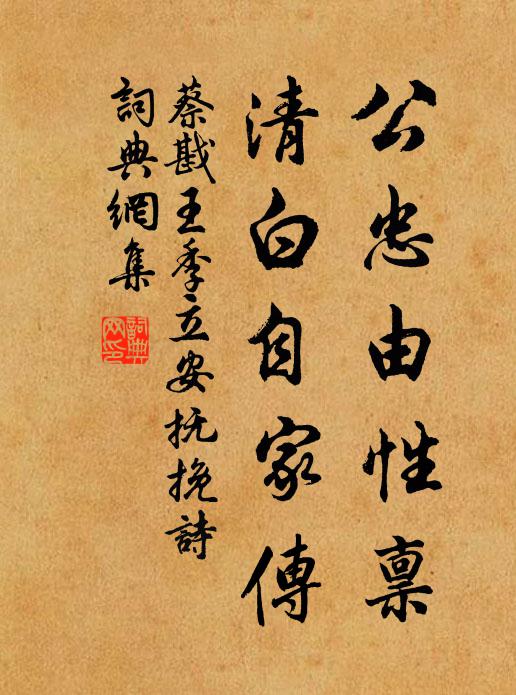 公忠由性禀
清白自家傳
蔡戡王季立安抚挽詩
詞典網集
詞典網印